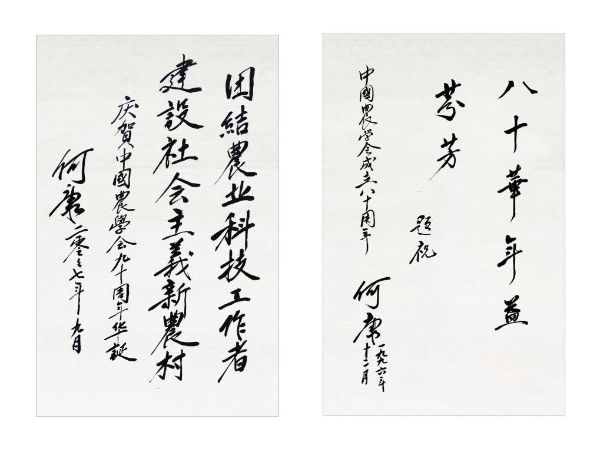 团結農业科技工作者
建設社会主義新農村
庆賀中國農學会九十周年华誕
何康 二零零七年九月
八十華年益
芬芳
题祝
中國農學会成立八十周年
何康 一九九六年
十二月